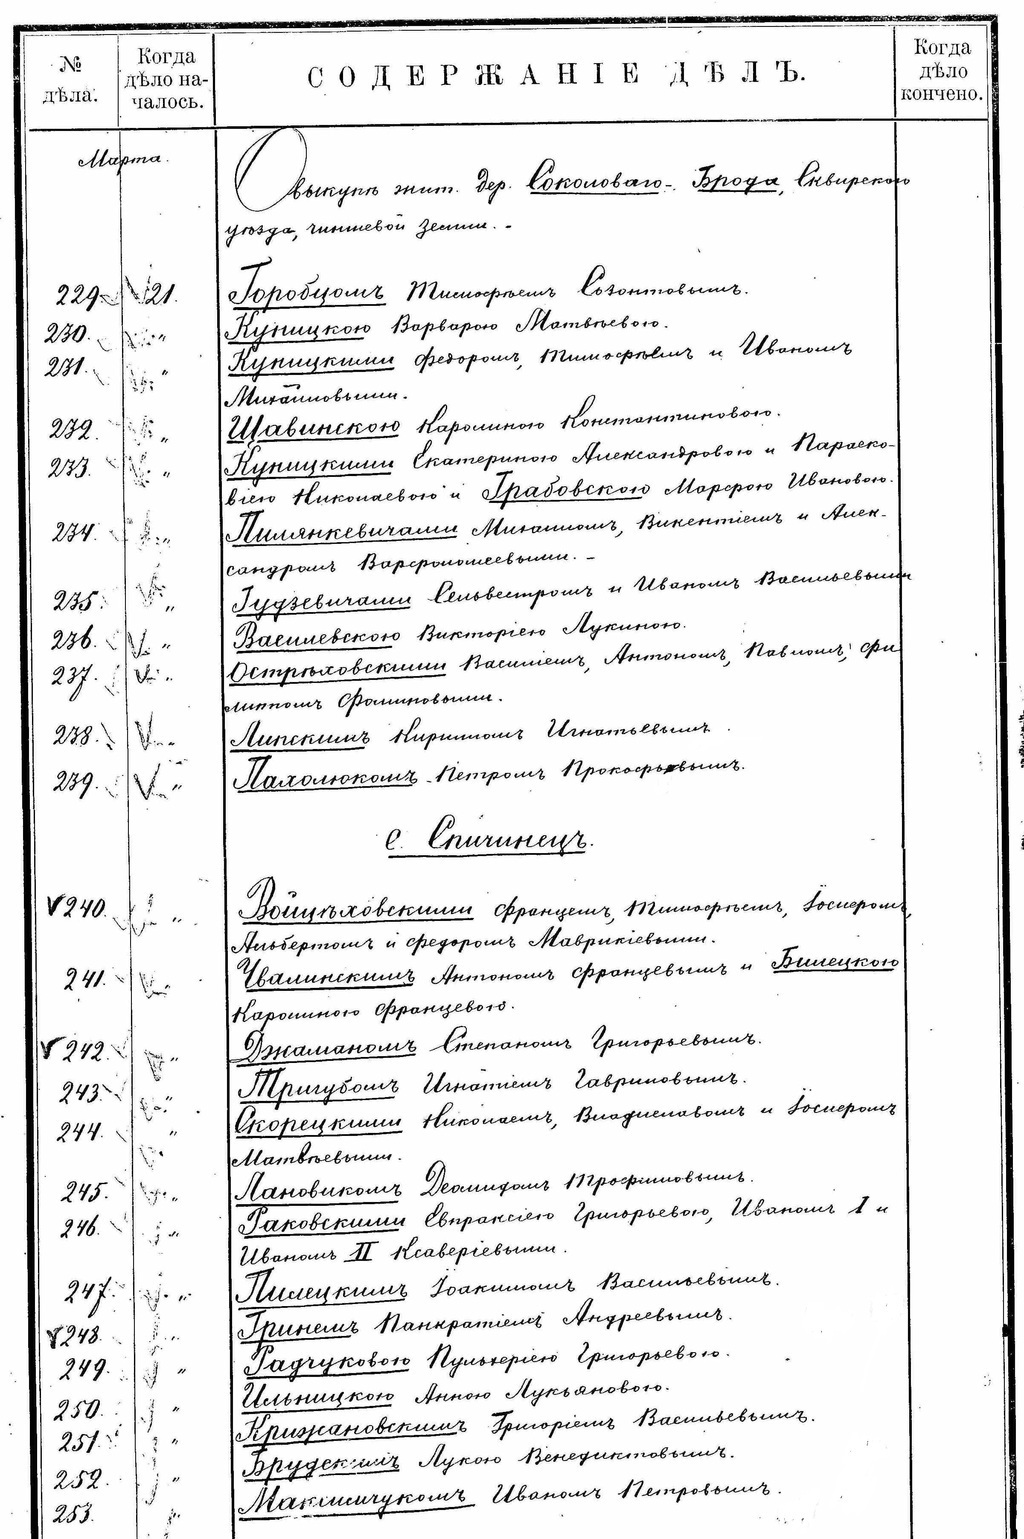 № дѣла.
Когда дѣло на-
чалось.
СОДЕРЖАНІЕ ДѢЛЪ.
Когда дѣло кончено.
Марта.
О выкупѣ жит. дер. Соколоваго-Брода, Сквирского
уѣзда, чиншевой земли. -
229 21. Горобцомъ Тимофѣемъ Созонтовымъ.
230. " Куницкою Варварою Матвѣевою.
231. " Куницкими Федоромъ, Тимофѣемъ и Иваномъ
Михайловыми.
232. " Щавинскою Каролиною Константиновою.
233. " Куницкими Екатериною Александровою и Параско-
віею Николаевою и Грабовскою Марфою Ивановою.
234. " Пилянкевичами Михаиломъ, Викентіемъ и Алек-
сандромъ Варфоломеевыми. -
235. " Гудзевичами Сельвестромъ и Иваномъ Васильевыми
236. " Василевскою Викторіею Лукиною.
237. " Острѣховскими Василіемъ, Антономъ, Павломъ, Фи
липпомъ Фоминовыми.
238. " Липскимъ Кириломъ Игнатьевымъ.
239. " Пахолюкомъ Петромъ Прокофьевымъ.
с. Спичинецъ.
V 240. " Войцѣховскими Францемъ, Тимофѣемъ, Іосифомъ,
Альбертомъ и Федоромъ Маврикіевыми.
241. " Чвалинскимъ Антономъ Францевымъ и Билецкою
Каролиною Францевою.
V 242. " Джаманомъ Степаномъ Григорьевымъ.
243. " Тригубомъ Игнатіемъ Гавриловымъ.
244. " Скорецкими Николаемъ, Владиславомъ и Іосифомъ
Матвѣевыми.
245. " Лановикомъ Деомидомъ Трофимовымъ.
246. " Раковскими Евпраксіею Григорьевою, Иваномъ I и
Иваномъ II Ксаверіевыми.
247. " Пилецкимъ Іоакимомъ Васильевымъ.
V 248. " Гринемъ Панкратіемъ Андреевымъ.
249. " Радчуковою Пульхеріею Григорьевою.
250. " Ильницкою Анною Лукьяновою.
251. " Крижановскимъ Григоріемъ Васильевымъ.
252. " Брудскимъ Лукою Венедиктовымъ.
253. " Максимчукомъ Иваномъ Петровымъ.